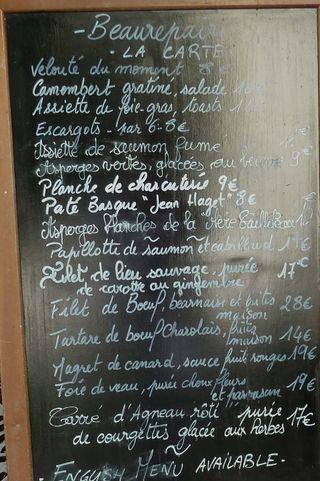 - Beaurepaire
- LA CARTE
Velouté du moment 8 €
Camembert gratiné, salade
Assiette de foie-gras, toasts
Escargots - par 6 - 8€
Assiette de saumon fumé
Asperges vertes, glacées au beurre 9€
Planche de charcuterie 9€
Paté Basque "Jean Haget" 8€
Asperges Blanches de la
Papillotte de saumon et cabillaud
Filet de lieu sauvage, purée 17€
de carotte au gingembre
Filet de Boeuf, bearnaise et frites 28€
maison
Tartare de boeuf Charolais, frites 14€
maison
Magret de canard, sauce fruits rouges 19€
Foie de veau, purée choux fleurs 19€
et parmesan
Carré d'Agneau rôti, purée 17€
de courgettes glacée aux herbes
- ENGLISH MENU AVAILABLE -